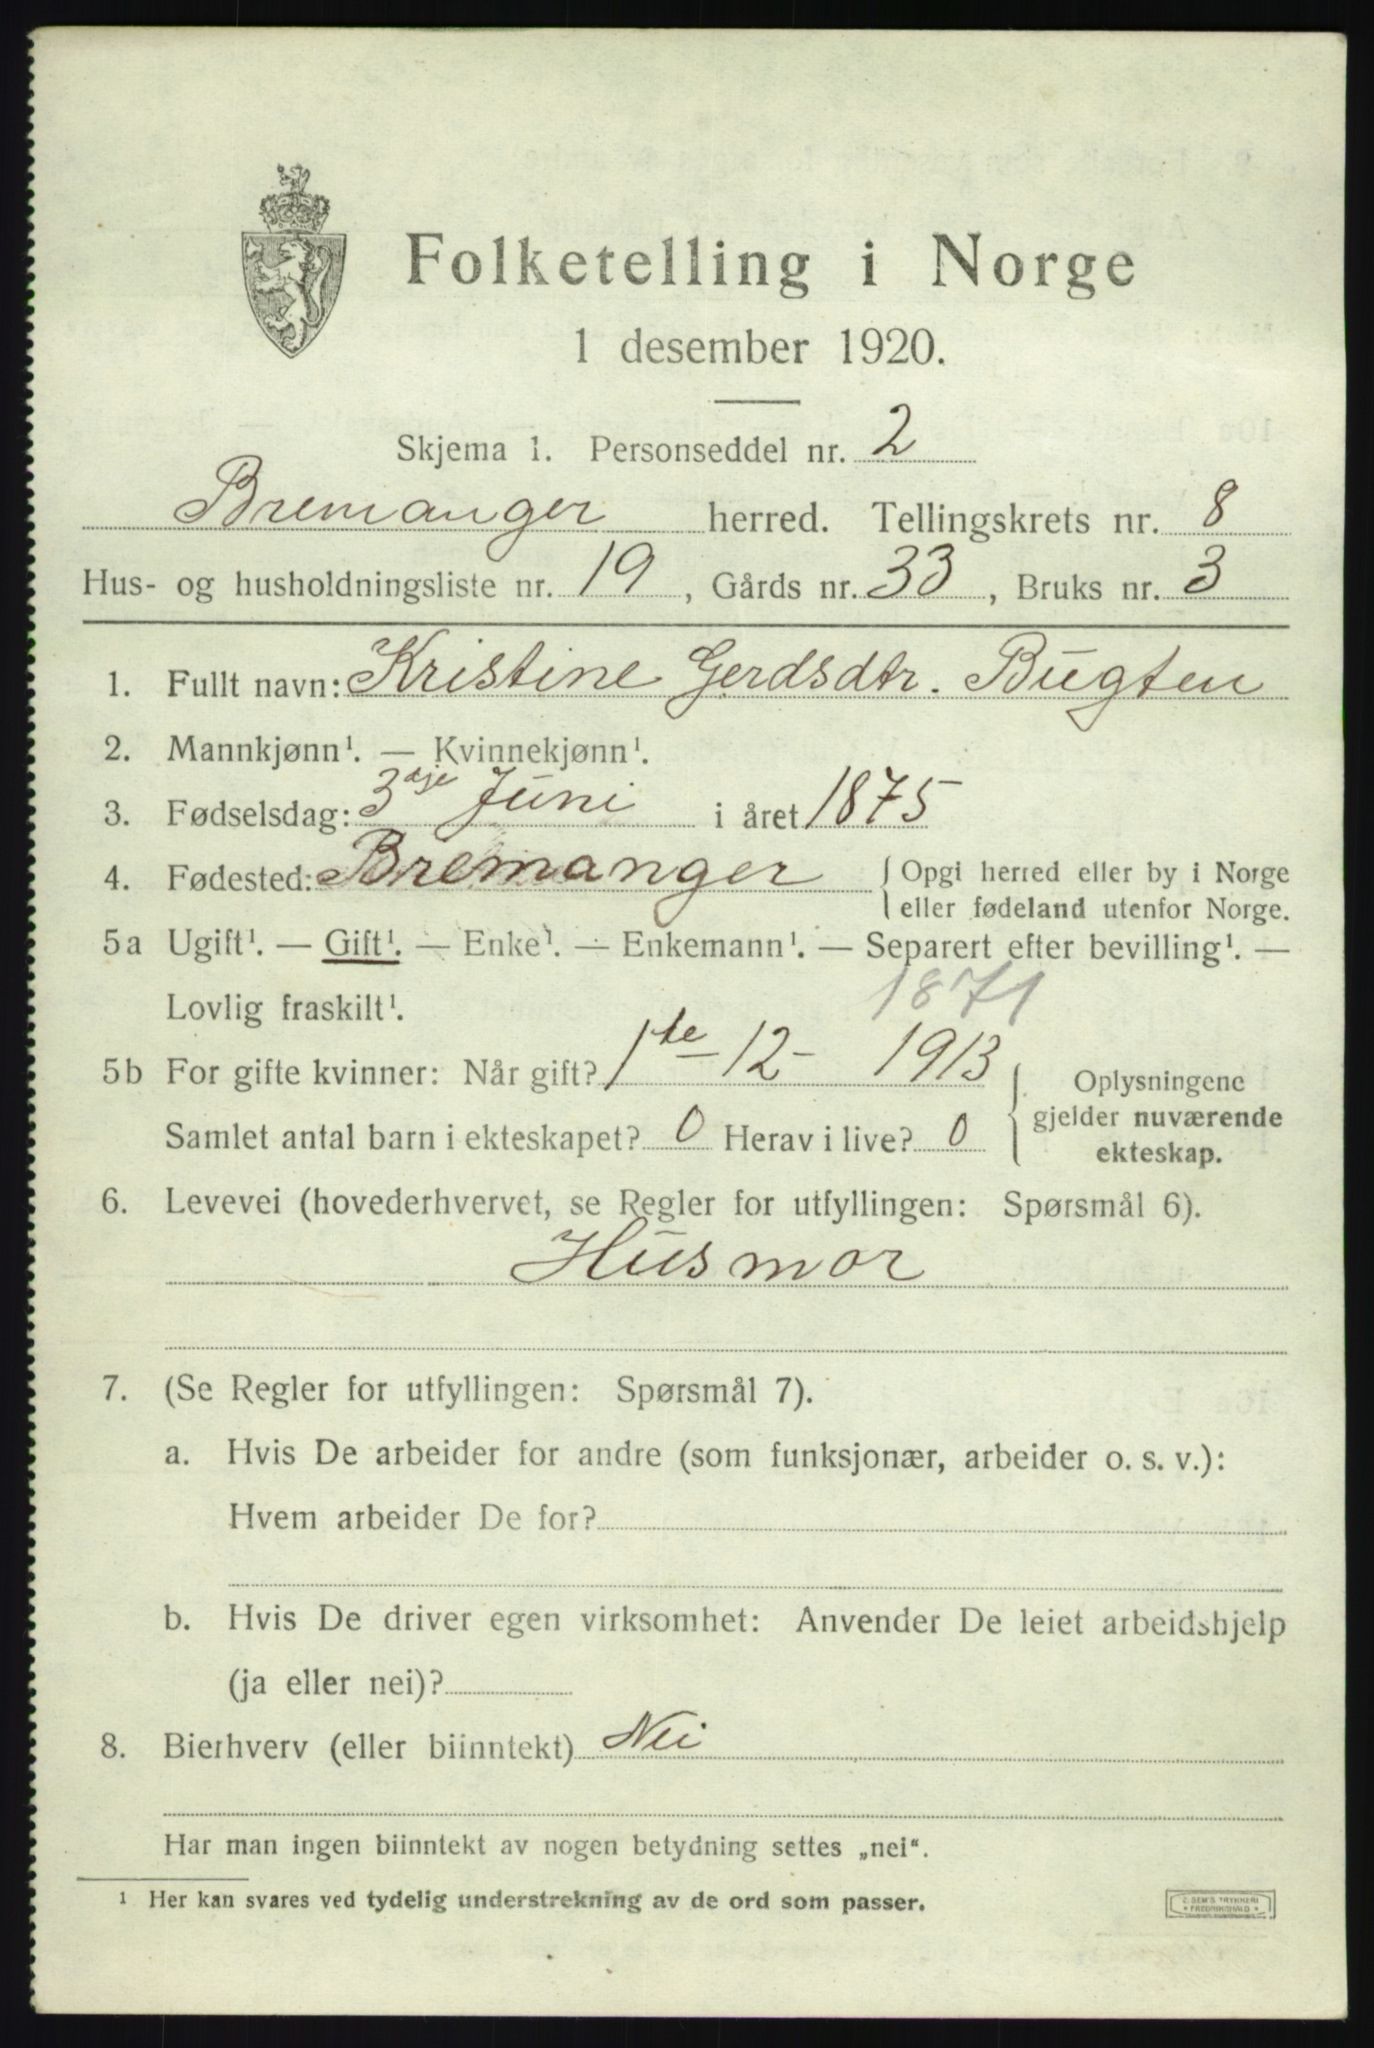 Folketelling i Norge
1 desember 1920.
Skjema 1. Personseddel nr. 2
Bremanger herred. Tellingskrets nr. 8
Hus- og husholdningsliste nr. 19, Gårds nr. 33, Bruks nr. 3
1. Fullt navn: Kristine Gerdsdtr. Bugten
2. Mannkjønn¹. — Kvinnekjønn¹.
3. Fødselsdag: 3dje Juni i året 1875
4. Fødested: Bremanger { Opgi herred eller by i Norge
eller fødeland utenfor Norge.
5a Ugift¹. — Gift¹. — Enke¹. — Enkemann¹. — Separert efter bevilling¹. —
Lovlig fraskilt¹. 1871
5b For gifte kvinner: Når gift? 1te - 12 - 1913
Samlet antal barn i ekteskapet? 0 Herav i live? 0
{ Oplysningene
gjelder nuværende
ekteskap.
6. Levevei (hovederhvervet, se Regler for utfyllingen: Spørsmål 6).
Husmor
7. (Se Regler for utfyllingen: Spørsmål 7).
a. Hvis De arbeider for andre (som funksjonær, arbeider o. s. v.):
Hvem arbeider De for?
b. Hvis De driver egen virksomhet: Anvender De leiet arbeidshjelp
(ja eller nei)?
8. Bierhverv (eller biinntekt) Nei
Har man ingen biinntekt av nogen betydning settes „nei“.
¹ Her kan svares ved tydelig understrekning av de ord som passer.
E. SEM'S TRYKKERI
* FREDRIKSHALD *